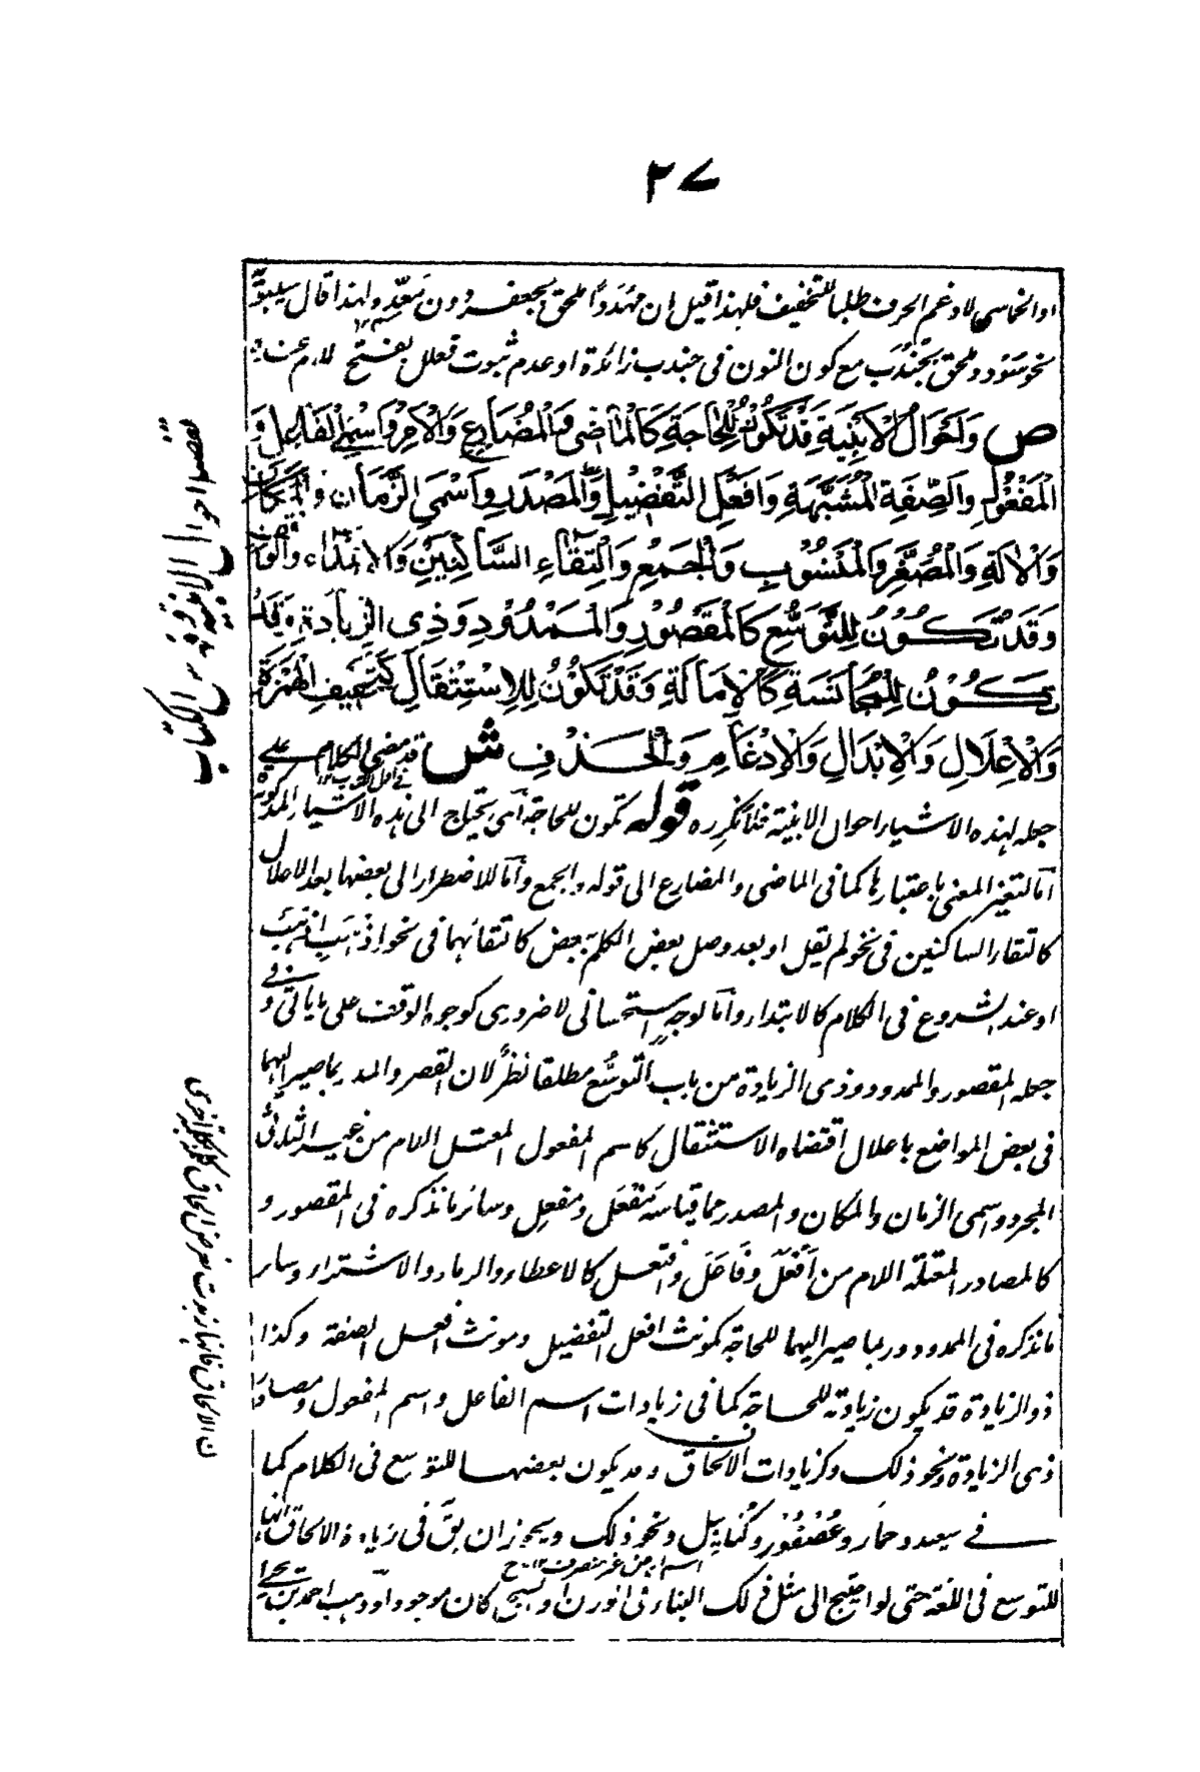 ٢٧
او الخماسى لادغم الحرف طلبا للتخفيف فلهذا قيل ان مَهْدَدًا ملحق بجعفر دون مَعَدّ ولهذا قال سيبويه
نحو سُوْدد ملحق بجُنْدَب مع كون النون فى جندب زائدة او عدم ثبوت فعلل بفتح اللام عنده
ص وَاَحْوَالُ الْاَبْنِيَةِ قَدْ تَكُوْنُ لِلْحَاجَةِ كَالْمَاضِى وَالْمُضَارِعِ وَالْاَمْرِ وَاسْمِ الْفَاعِلِ وَ
الْمَفْعُوْلِ وَالصِّفَةِ الْمُشَبَّهَةِ وَاَفْعَلِ التَّفْضِيْلِ وَالْمَصْدَرِ وَاسْمَىِ الزَّمَانِ وَالْمَكَانِ
وَالْاٰلَةِ وَالْمُصَغَّرِ وَالْمَنْسُوْبِ وَالْجَمْعِ وَالْتِقَاءِ السَّاكِنَيْنِ وَالْاِبْتِدَاءِ وَالْوَقْفِ
وَقَدْ تَكُوْنُ لِلتَّوَسُّعِ كَالْمَقْصُوْرِ وَالْمَمْدُوْدِ وَذِى الزِّيَادَةِ وَقَدْ
تَكُوْنُ لِلْمُجَانَسَةِ كَالْاِمَالَةِ وَقَدْ تَكُوْنُ لِلْاِسْتِثْقَالِ كَتَخْفِيْفِ الْهَمْزَةِ
وَالْاِعْلَالِ وَالْاِبْدَالِ وَالْاِدْغَامِ وَالْحَذْفِ ش قد مضى الكلام على
فى اول الكتاب ١٢
جعله لهذه الاشياء احوال الابنية فلا نكرره قوله تكون للحاجة اى يحتاج الى هذه الاشياء المذكورة
اما لتغير المعنى باعتبارها كما فى الماضى والمضارع الى قوله والجمع واما للاضطرار الى بعضها بعد الاعلال
كالتقاء الساكنين فى نحو لم يقل او بعد وصل بعض الكلم ببعض كالتقائهما فى نحو اذهب اذهب
او عند الشروع فى الكلام كالابتداء واما لوجه استحسانى لا ضرورى كوجوه الوقف على ما ياتى وفى
جعله المقصور والممدود وذى الزيادة من باب التوسُّع مطلقا نظر لان القصر والمد ربما صير اليهما
فى بعض المواضع باعلال اقتضاه الاستثقال كاسم المفعول المعتل اللام من غير الثلاثى
المجرد واسمى الزمان والمكان والمصدر مما قياسه مَفْعَل ومُفْعَل وسائر ما نذكره فى المقصور و
كالمصادر المعتلة اللام من اَفْعَلَ وفَاعَلَ وافتعل كالاعطاء والرماء والاشتراء وسائر
ما نذكره فى الممدود وربما صير اليهما للحاجة كمونث افعل التفضيل ومونث افعل الصفة وكذا
ذو الزيادة قد يكون زيادته للحاجة كما فى زيادات اسم الفاعل واسم المفعول ومصادر
ذى الزيادة ونحو ذلك وكزيادات الالحاق وقد يكون بعضها للتوسع فى الكلام كما
فى سعيد وحمار وعُصْفُور وكُنَابِيل ونحو ذلك ويجوز ان يقَ فى زيادة الالحاق انها
اسم ارض غير منصرف ١٢ ح
للتوسع فى اللغة حتى لو احتيج الى مثل ذلك البناء فى الوزن او السجع كان موجودا وذهب احمد بن يحيى
تفصيل احوال الابنية